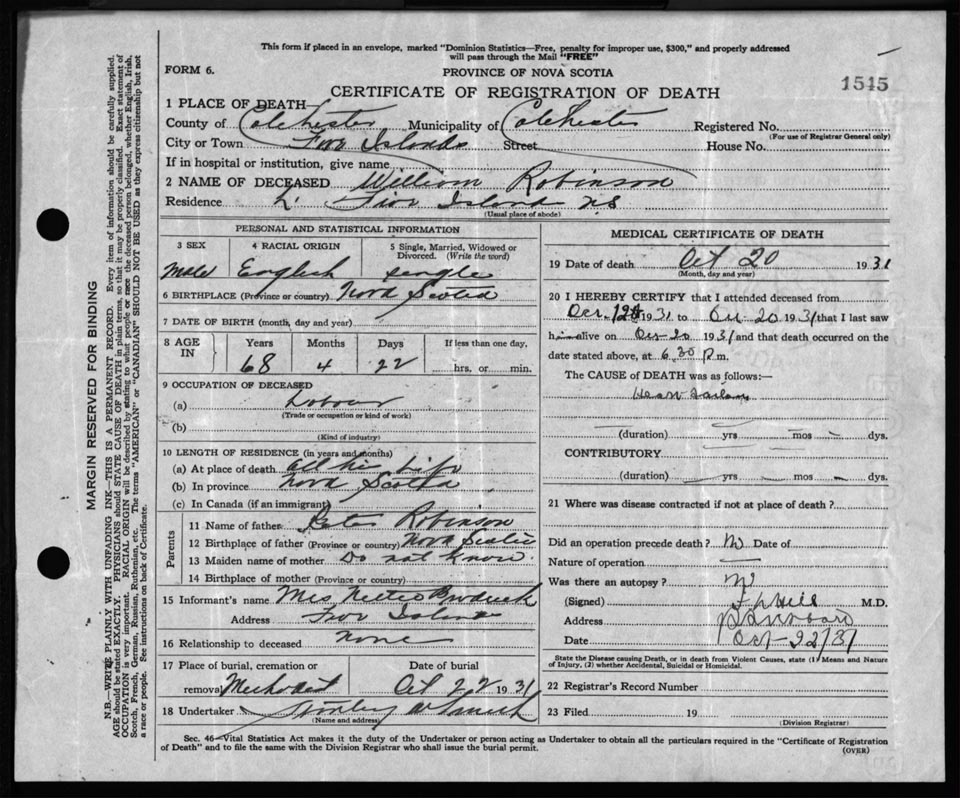 This form if placed in an envelope, marked "Dominion Statistics—Free, penalty for improper use, $300," and properly addressed
will pass through the Mail "FREE"
FORM 6.
PROVINCE OF NOVA SCOTIA
1515
CERTIFICATE OF REGISTRATION OF DEATH
1 PLACE OF DEATH
County of Colchester Municipality of Colchester Registered No.
(For use of Registrar General only)
City or Town Two Islands Street House No.
If in hospital or institution, give name
2 NAME OF DECEASED William Robinson
Residence Two Island N.S
(Usual place of abode)
PERSONAL AND STATISTICAL INFORMATION
3 SEX 4 RACIAL ORIGIN 5 Single, Married, Widowed or
Divorced. (Write the word)
Male English single
6 BIRTHPLACE (Province or country) Nova Scotia
7 DATE OF BIRTH (month, day and year)
8 AGE IN Years Months Days If less than one day,
68 4 22 hrs. or min.
9 OCCUPATION OF DECEASED
(a) Labour
(Trade or occupation or kind of work)
(b)
(Kind of industry)
10 LENGTH OF RESIDENCE (in years and months)
(a) At place of death all his Life
(b) In province Nova Scotia
(c) In Canada (if an immigrant)
Parents
11 Name of father Peter Robinson
12 Birthplace of father (Province or country) Nova Scotia
13 Maiden name of mother Do not know
14 Birthplace of mother (Province or country)
15 Informant's name Mrs
Address Two Islands
16 Relationship to deceased None
17 Place of burial, cremation or Date of burial
removal Methodist Oct 22 1931
18 Undertaker Stanley
(Name and address)
MEDICAL CERTIFICATE OF DEATH
19 Date of death Oct 20 1931
(Month, day and year)
20 I HEREBY CERTIFY that I attended deceased from
Oct. 12th 1931 to Oct. 20 1931 that I last saw
him alive on Oct 20 1931 and that death occurred on the
date stated above, at 6.30 P.m.
The CAUSE of DEATH was as follows:—
Heart Failure
(duration) yrs mos dys.
CONTRIBUTORY
(duration) yrs mos dys.
21 Where was disease contracted if not at place of death?
Did an operation precede death? No Date of
Nature of operation
Was there an autopsy? No
(Signed) Hill M.D.
Address
Date Oct-22/31
State the Disease causing Death, or in death from Violent Causes, state (1) Means and Nature
of Injury, (2) whether Accidental, Suicidal or Homicidal.
22 Registrar's Record Number
23 Filed 19
(Division Registrar)
Sec. 46—Vital Statistics Act makes it the duty of the Undertaker or person acting as Undertaker to obtain all the particulars required in the "Certificate of Registration
of Death" and to file the same with the Division Registrar who shall issue the burial permit.
(OVER)
MARGIN RESERVED FOR BINDING
N.B.—WRITE PLAINLY WITH UNFADING INK—THIS IS A PERMANENT RECORD. Every item of information should be carefully supplied.
AGE should be stated EXACTLY. PHYSICIANS should STATE CAUSE OF DEATH in plain terms, so that it may be properly classified. Exact statement of
OCCUPATION is very important. RACIAL ORIGIN will be described by stating to what people or race the deceased person belonged, whether English, Irish,
Scotch, French, German, Russian, Ruthenian, etc. The terms "AMERICAN" or "CANADIAN" SHOULD NOT BE USED as they express citizenship but not
a race or people. See instructions on back of Certificate.